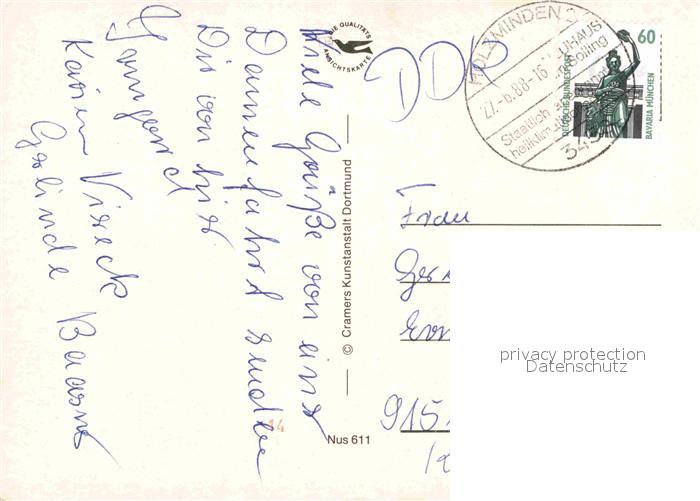 Viele Grüße von einer
Damenfahrt senden
Dir von hier
Irmgard
Karin Viereck
Gerlinde
DIE QUALITÄTS
ANSICHTSKARTE
© Cramers Kunstanstalt Dortmund
Nus 611
14
DDR
HOLZMINDEN 2
27.-6.88-16
NEUHAUS
Solling
Staatlich
heilklim
345
DEUTSCHE BUNDESPOST
60
BAVARIA MÜNCHEN
Frau
Ger
915
privacy protection
Datenschutz